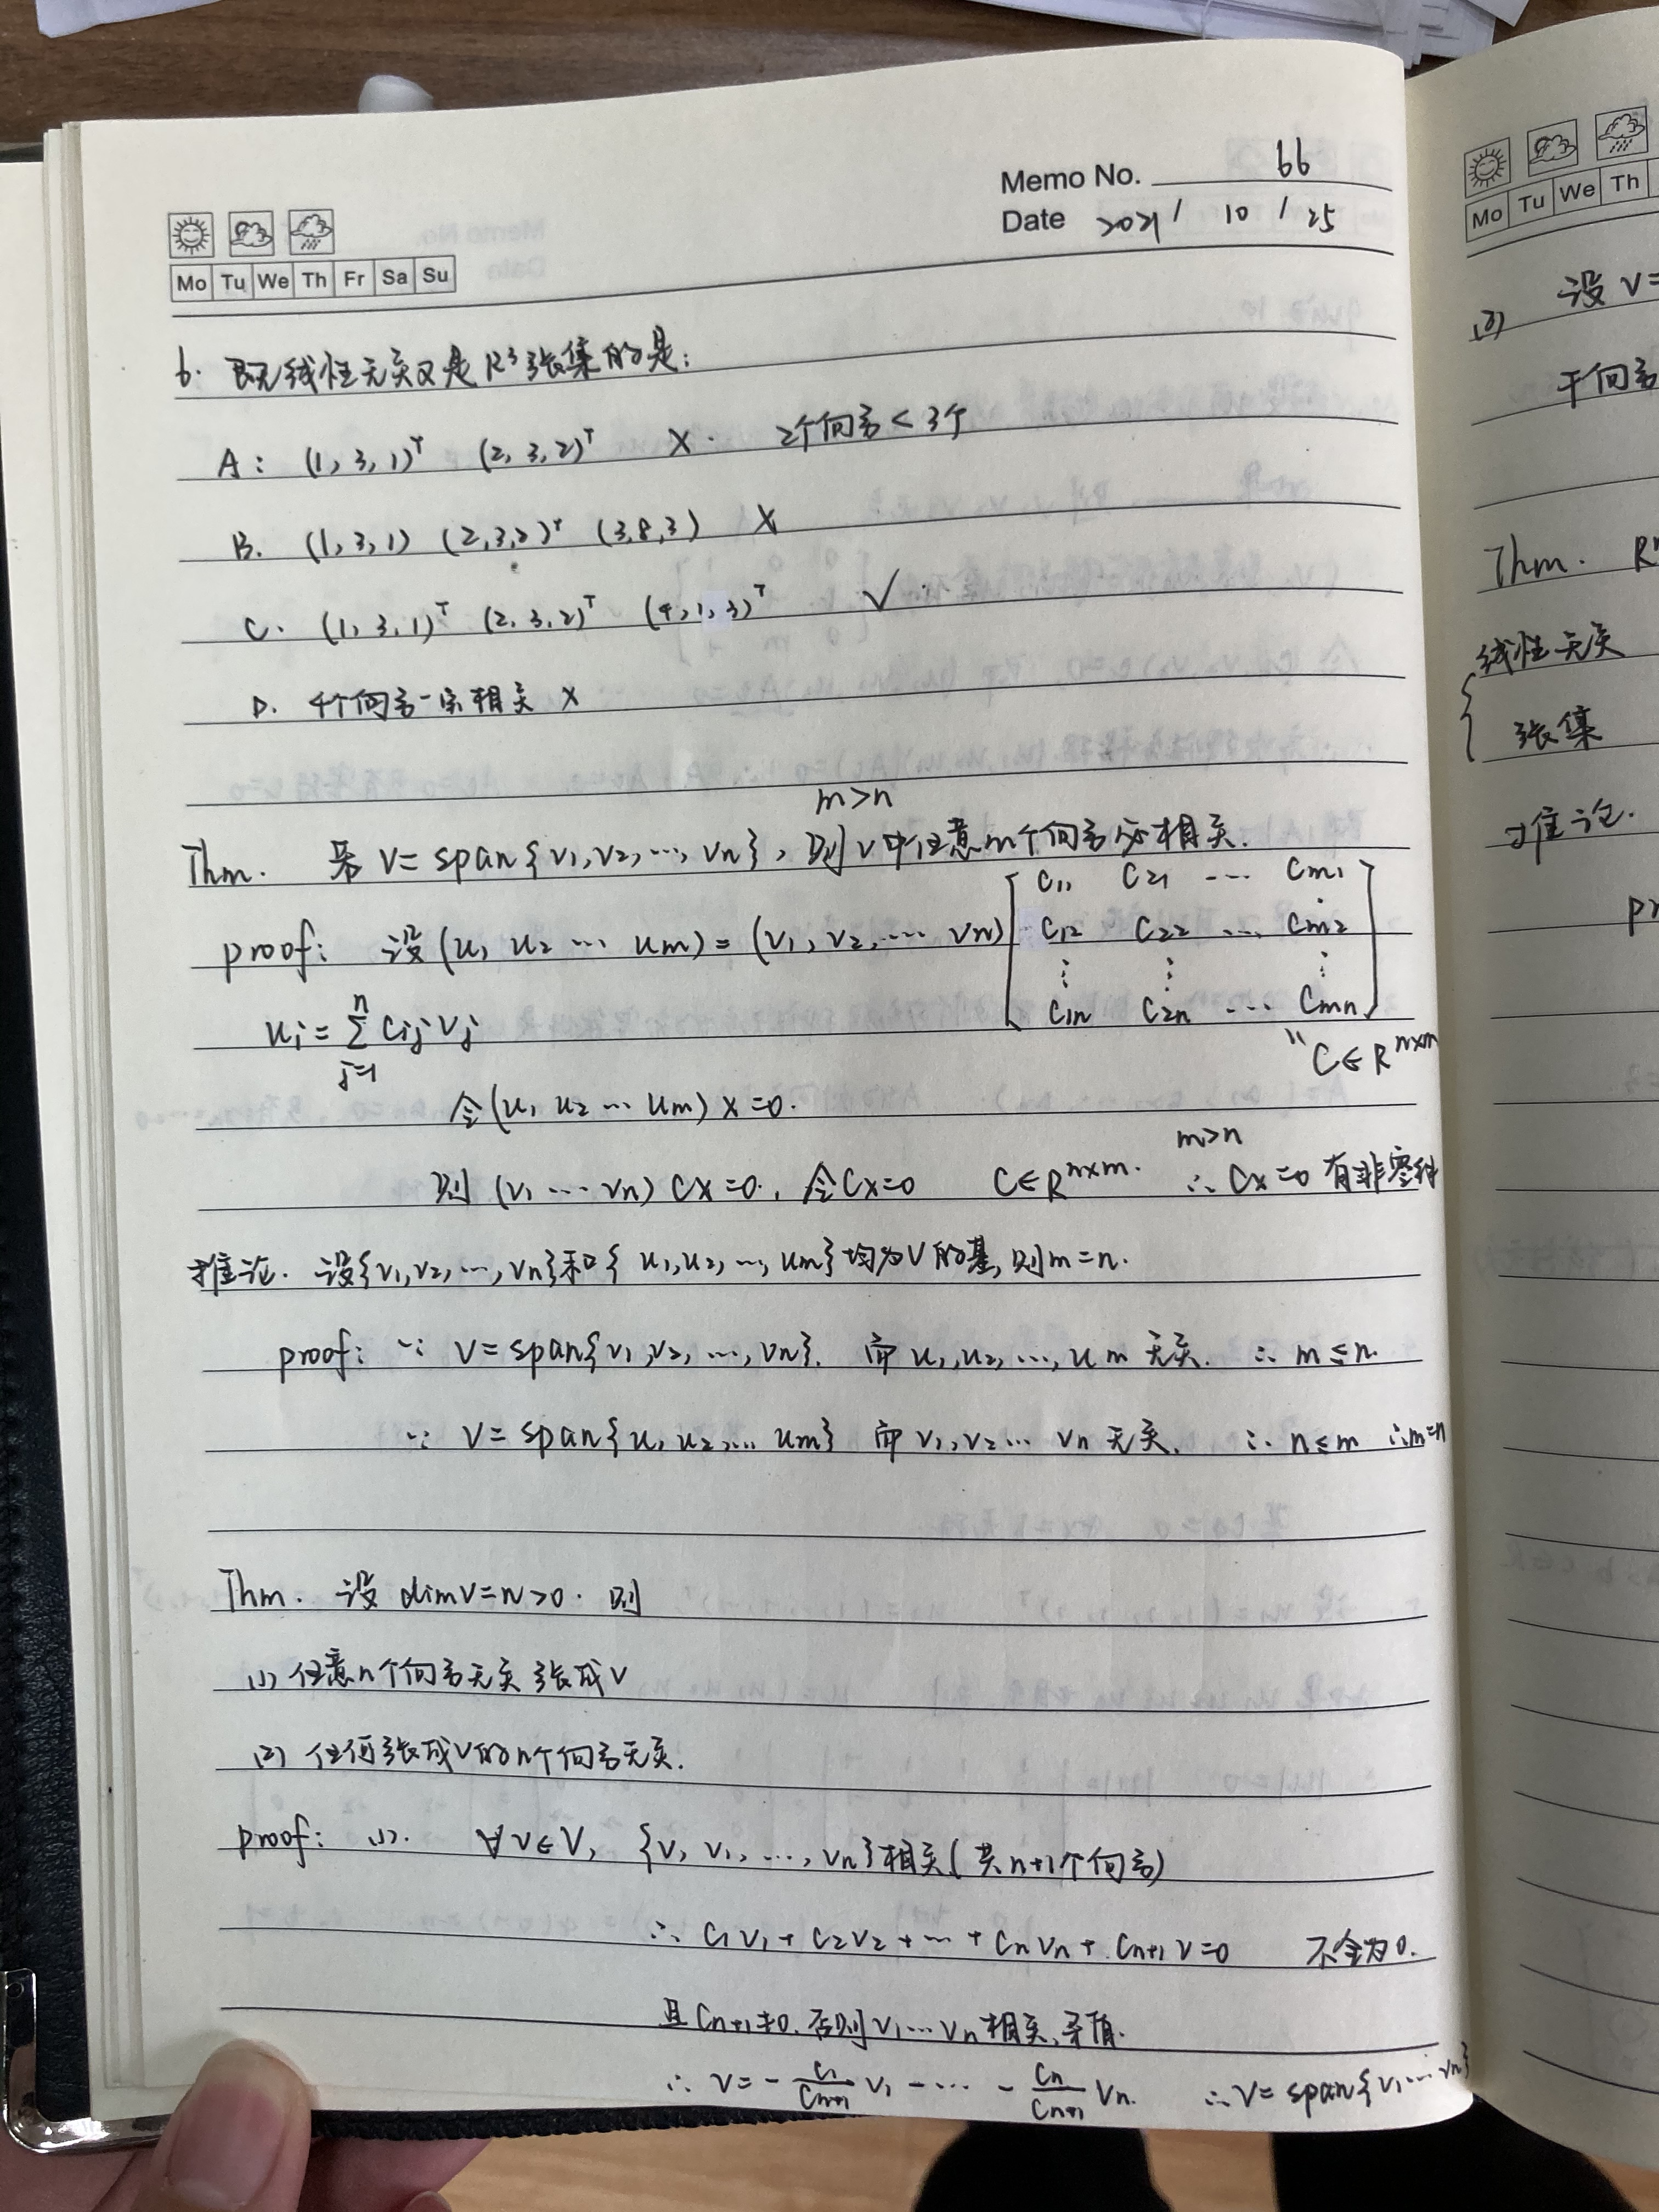 Memo No. 66
Date 2021 / 10 / 25
Mo Tu We Th Fr Sa Su
6. 既线性无关又是R³张集的是:
A: (1, 3, 1)ᵀ (2, 3, 2)ᵀ × . 2个向量 < 3个
B. (1, 3, 1) (2, 3, 2)ᵀ (3, 8, 3) ×
C. (1, 3, 1)ᵀ (2, 3, 2)ᵀ (4, 1, 3)ᵀ ✓
D. 4个向量一定相关 ×
m>n
Thm. 若 V = span{v₁, v₂, ..., vₙ}, 则V中任意m个向量必相关.
proof: 设(u₁ u₂ ... uₘ) = (v₁, v₂, ... vₙ) [C₁₁ C₂₁ --- Cₘ₁
C₁₂ C₂₂ ... Cₘ₂
⋮ ⋮ ⋮
C₁ₙ C₂ₙ ... Cₘₙ]
uᵢ = ∑ⱼ₌₁ⁿ Cᵢⱼ vⱼ
"C∈Rⁿˣᵐ
令(u₁ u₂ ... uₘ) x = 0.
则 (v₁ ... vₙ) Cx = 0. 令Cx = 0 C∈Rⁿˣᵐ. m>n ∴ Cx = 0 有非零解
推论. 设{v₁, v₂, ..., vₙ}和{u₁, u₂, ..., uₘ}均为V的基, 则m = n.
proof: ∵ V = span{v₁, v₂, ..., vₙ}. 而 u₁, u₂, ..., uₘ 无关. ∴ m ≤ n.
∵ V = span{u₁, u₂, ... uₘ} 而 v₁, v₂ ... vₙ 无关. ∴ n ≤ m ∴ m = n
Thm. 设 dimV = n > 0. 则
(1) 任意n个向量无关 张成V
(2) 任何张成V的n个向量无关.
proof: (1). ∀v∈V, {v, v₁, ..., vₙ}相关(共n+1个向量)
∴ C₁v₁ + C₂v₂ + ... + Cₙvₙ + Cₙ₊₁v = 0 不全为0.
且Cₙ₊₁≠0. 否则v₁ ... vₙ相关, 矛盾.
∴ v = - C₁/Cₙ₊₁ v₁ - ... - Cₙ/Cₙ₊₁ vₙ. ∴ V = span{v₁ ... vₙ}
Mo Tu We Th
(2) 设 V=
干向量
Thm. Rⁿ
线性无关
张集
推论.
pr